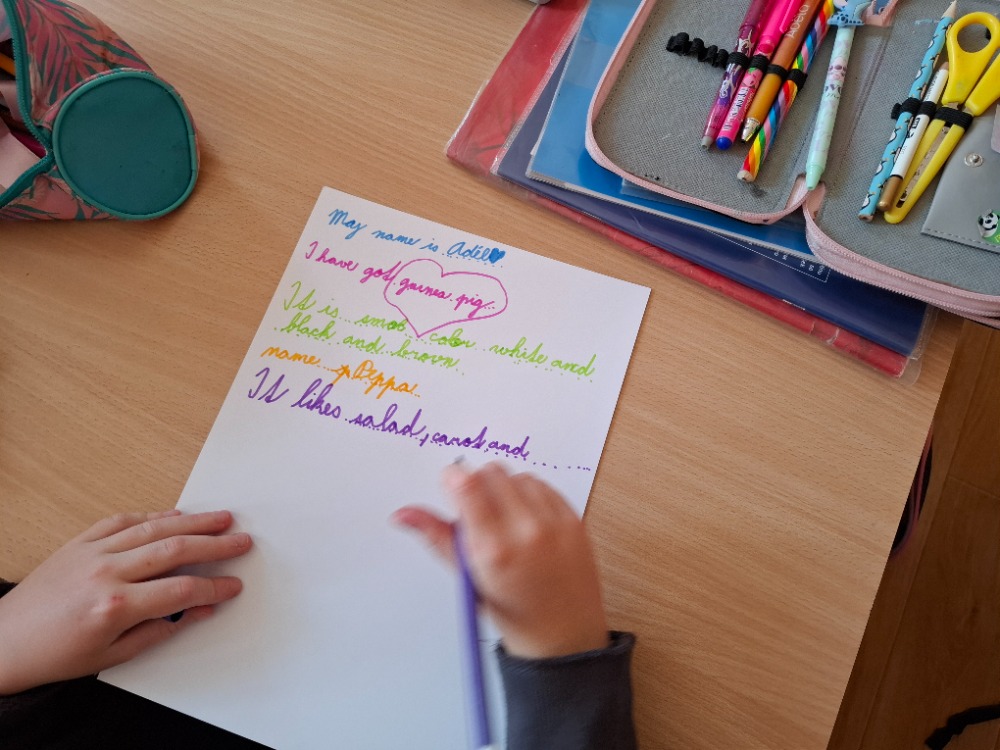 May name is Adél
I have got guinea pig
It is smol color white and
black and brown
name is Peppa
It likes salad, carot and